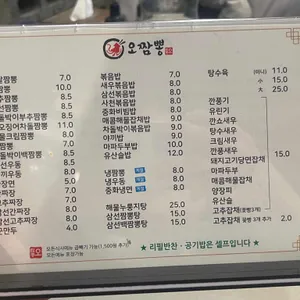 오짬뽕
짬뽕 7.0
짬뽕 10.0
짬뽕 8.5
짬뽕 8.5
돌박이부추짬뽕 11.5
오징어차돌짬뽕 11.5
크림짬뽕 8.5
돌박이백짬뽕 9.5
선우동 8.5
끼우동 8.5
장면 5.0
간짜장 8.5
추짜장 7.5
삼선간짜장 8.5
선짜장 8.0
군만두 4.0
볶음밥 7.0
새우볶음밥 8.0
삼선볶음밥 8.5
사천볶음밥 8.0
중화비빔밥 8.5
매콤해물잡채밥 9.0
차돌박이볶음밥 9.0
야끼밥 9.0
마파두부밥 8.0
유산슬밥 12.0
냉짬뽕 8.0
냉우동 8.0
중화냉면 8.0
해물누룽지탕 25.0
삼선짬뽕탕 15.0
삼선백짬뽕탕 15.0
탕수육 (미니) 11.0
小 15.0
大 25.0
깐풍기
유린기
깐쇼새우
탕수새우
크림새우
깐풍새우 15.0
돼지고기당면잡채
마파두부
매콤해물잡채
양장피
유산슬
고추잡채(꽃빵3개)
고추잡채 꽃빵 3개 추가 2.0
모든식사메뉴 곱빼기 가능(1,100원 추가)
모든메뉴 포장가능
★ 리필반찬 · 공기밥은 셀프입니다 ★